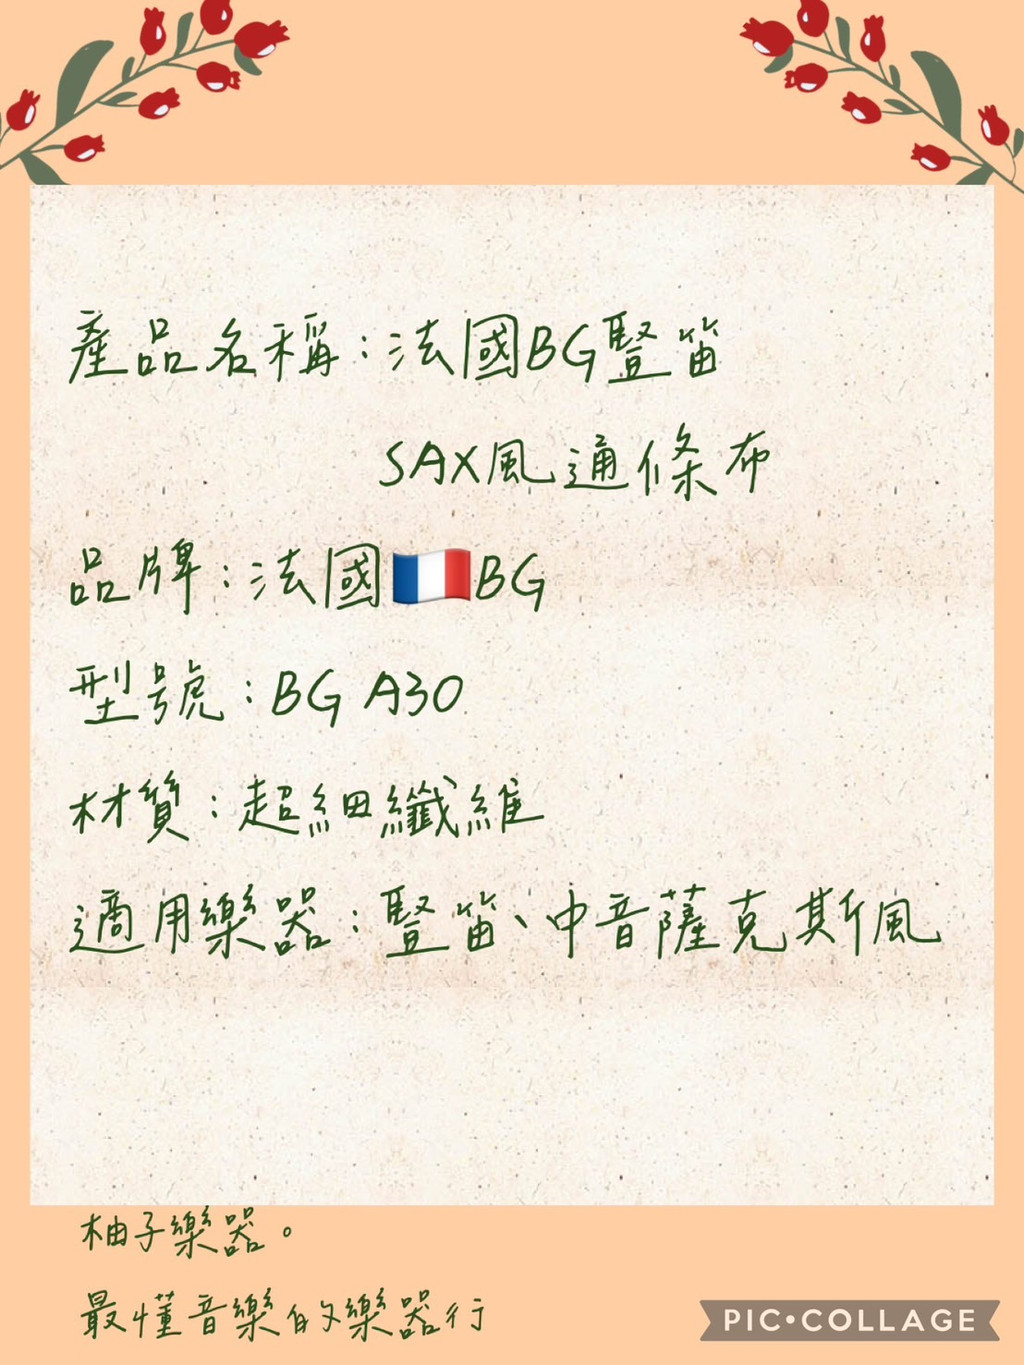 產品名稱:法國BG豎笛
SAX風通條布
品牌:法國🇫🇷BG
型號:BG A30
材質:超細纖維
適用樂器:豎笛、中音薩克斯風
柚子樂器。
最懂音樂的樂器行
PIC•COLLAGE